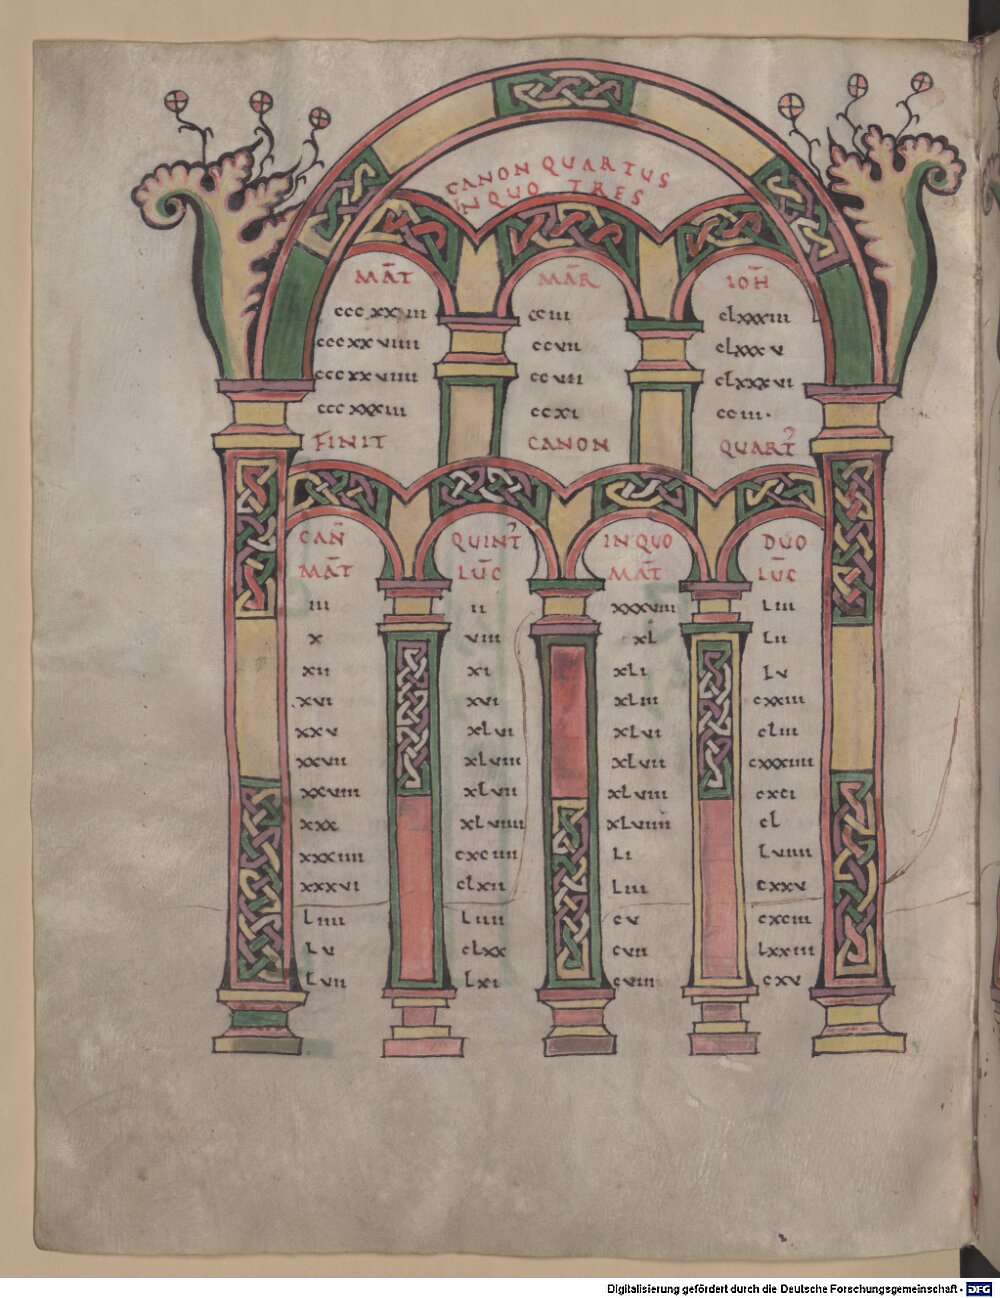 CANON QUARTUS
IN QUO TRES
MAT̄ MAR̄ IOH̄
cccxxiii cciii clxxxiii
cccxxviiii ccvii clxxxv
cccxxviiii ccvii clxxxvi
cccxxxiii ccxi cciii·
FINIT CANON QUART᾿
CAN̄ QUINT᾿ IN QUO DUO
MAT̄ LUC̄ MAT̄ LUC̄
iii ii xxxviiii liii
x viii xl lii
xii xi xli lv
xvi xvi xliii cxxiii
xxv xlvi xlvi cliii
xxvii xlviii xlvii cxxxiiii
xxviii xlvii xlviii cxci
xxx xlviiii xlviiii cl
xxxiiii cxciiii li lviiii
xxxvi clxii liii cxxv
liiii liiii cv cxciii
lv clxx cvii lxxiii
lvii lxi cviii cxv
Digitalisierung gefördert durch die Deutsche Forschungsgemeinschaft - DFG